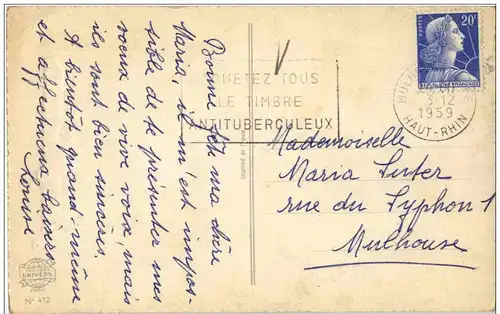 Bonne fête ma chère
Maria, il m'est impos-
sible de te présenter mes
voeux de vive voix, mais
ils sont bien sincères.
A bientôt quand-même
et affectueux baisers
Louise
ACHETEZ TOUS
LE TIMBRE
ANTITUBERCULEUX
POSTES
20F
REPUBLIQUE FRANÇAISE
3-12
1959
HAUT-RHIN
Mademoiselle
Maria Suter
rue du Syphon 1
Mulhouse
UNIVERS
N° 412